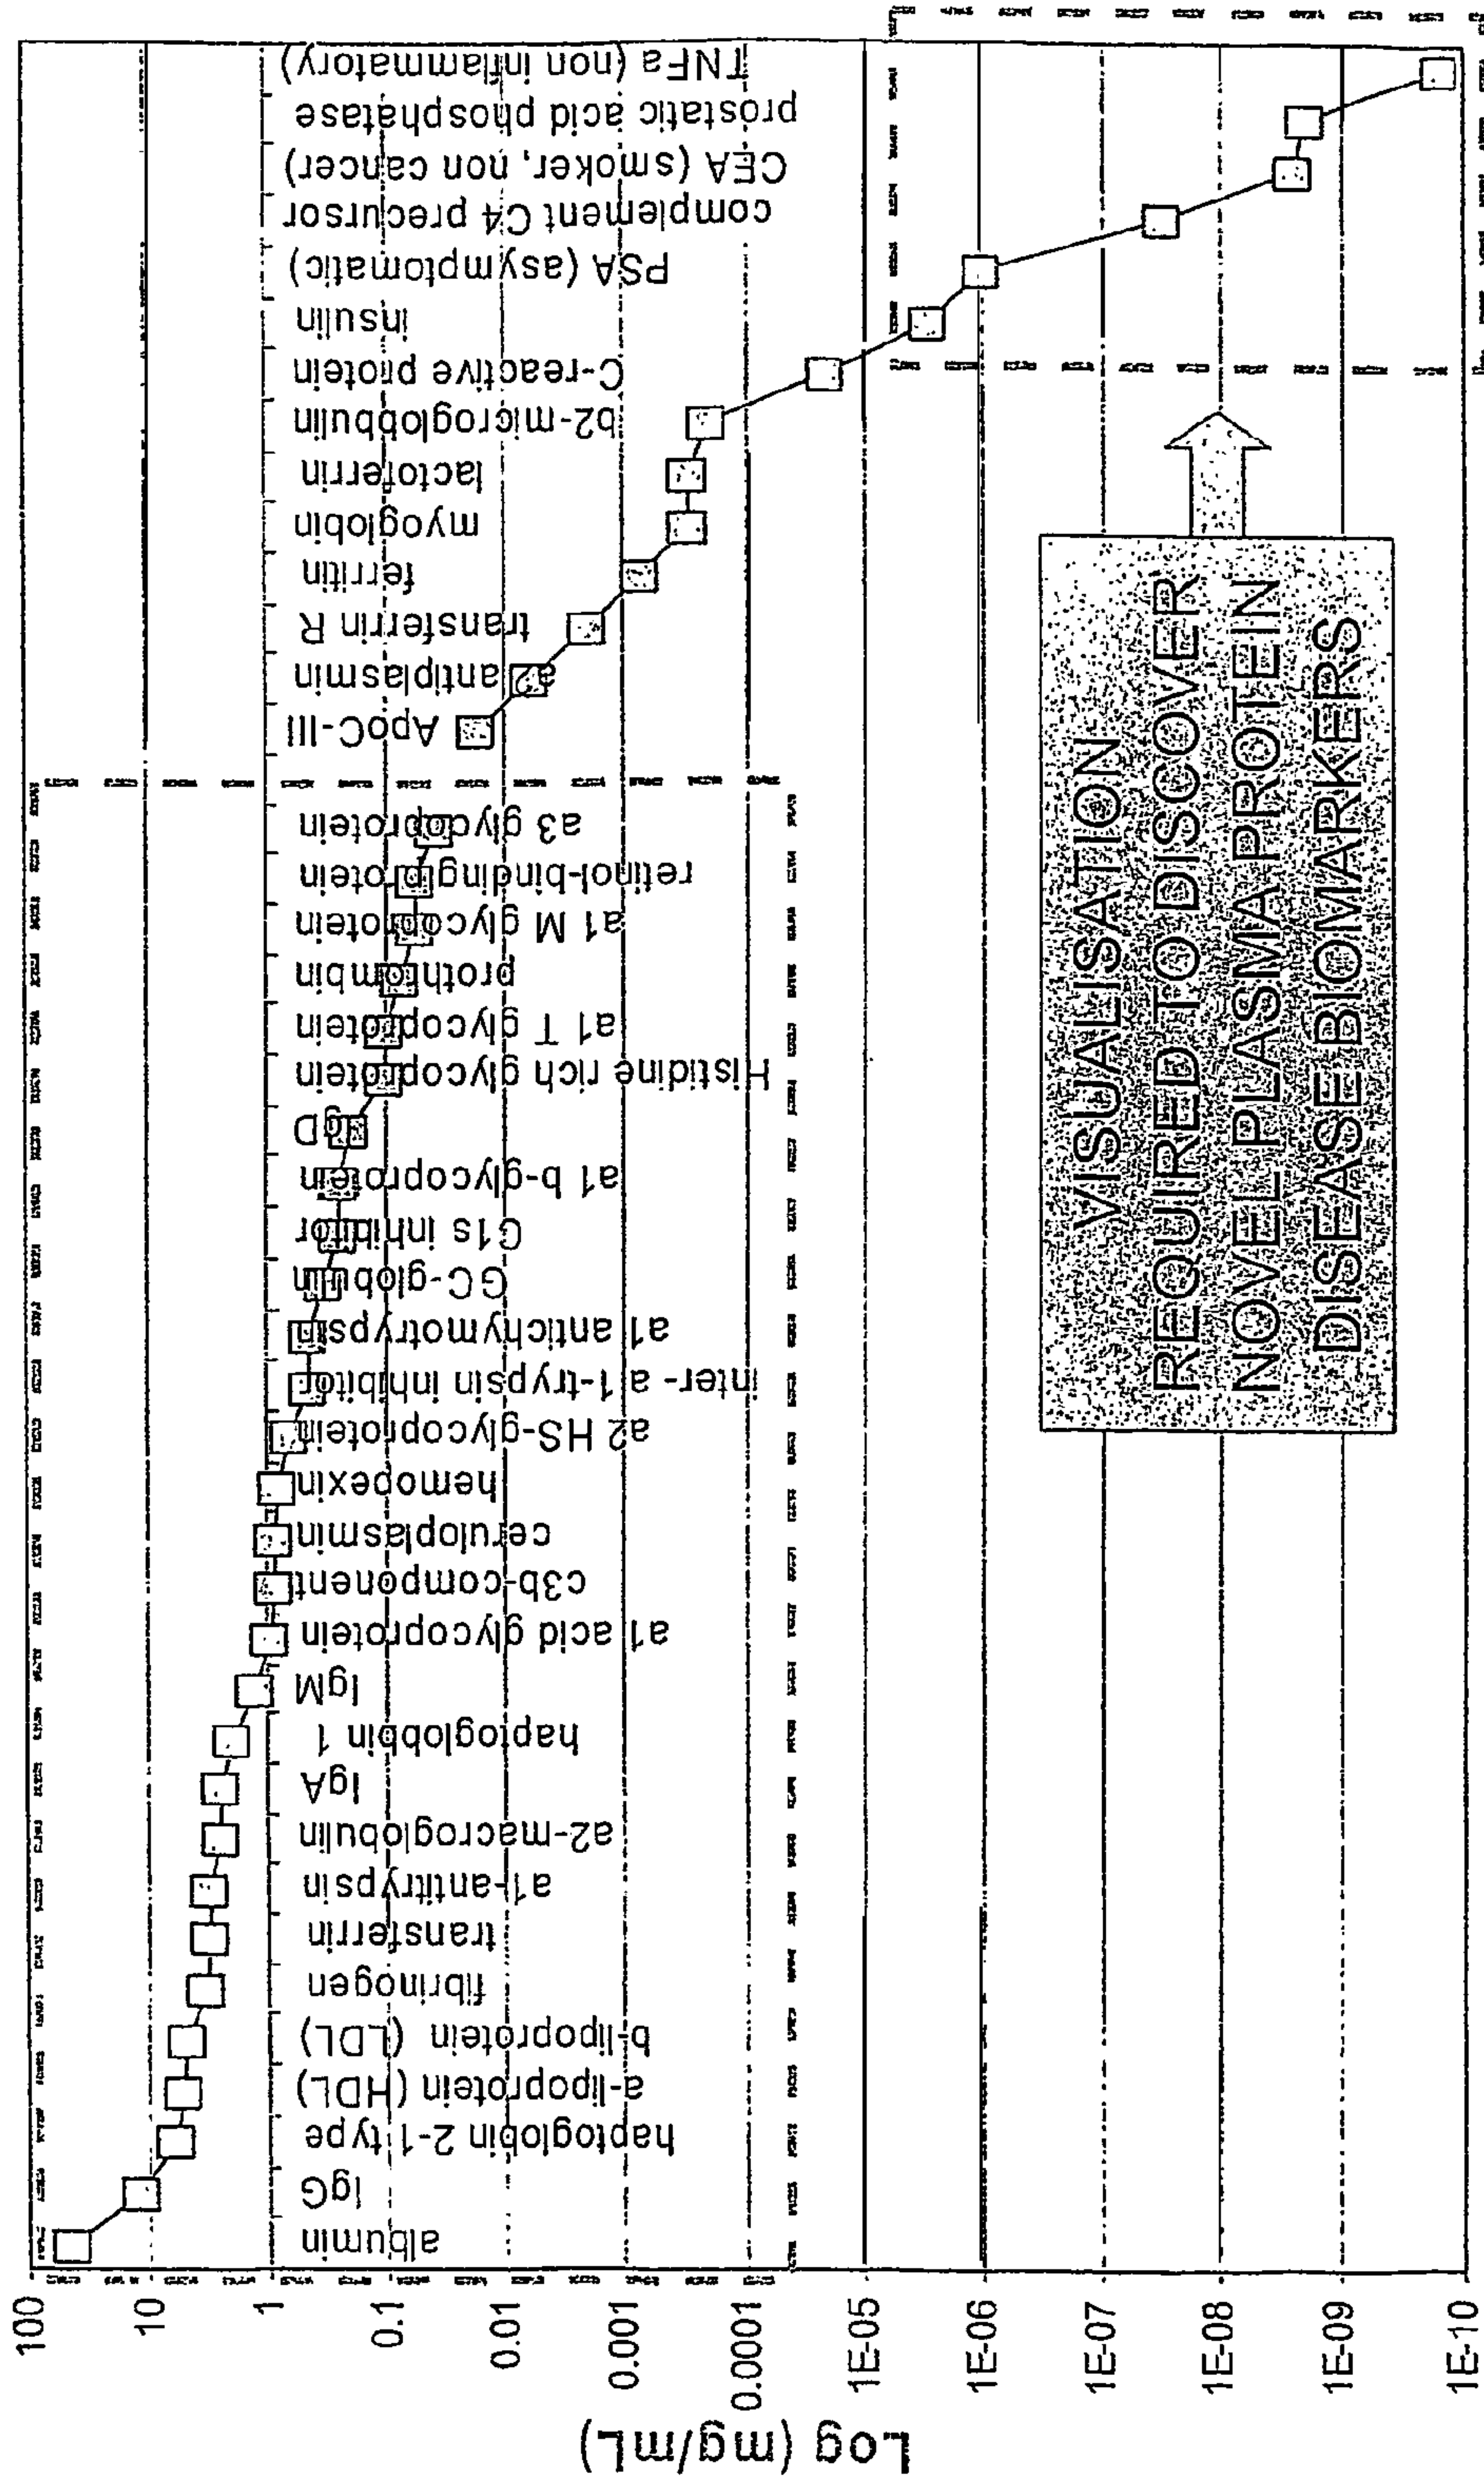 Log (mg/mL)
100
10
1
0.1
0.01
0.001
0.0001
1E-05
1E-06
1E-07
1E-08
1E-09
1E-10
albumin
IgG
haptoglobin 2-1 type
a-lipoprotein (HDL)
b-lipoprotein (LDL)
fibrinogen
transferrin
a1-antitrypsin
a2-macroglobulin
IgA
haptoglobbin 1
IgM
a1 acid glycoprotein
c3b-component
ceruloplasmin
hemopexin
a2 HS-glycoprotein
inter- a 1-trypsin inhibitor
a1 antichymotrypsin
GC-globulin
C1s inhibitor
a1 b-glycoprotein
IgD
Histidine rich glycoprotein
a1 T glycoprotein
prothrombin
a1 M glycoprotein
retinol-binding protein
a3 glycoprotein
ApoC-III
a2 antiplasmin
transferrin R
ferritin
myoglobin
lactoferrin
b2-microglobbulin
C-reactive protein
insulin
PSA (asymptomatic)
complement C4 precursor
CEA (smoker, non cancer)
prostatic acid phosphatase
TNFa (non inflammatory)
VISUALISATION
REQUIRED TO DISCOVER
NOVEL PLASMA PROTEIN
DISEASE BIOMARKERS